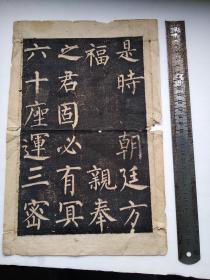 是時 朝廷方
福 親奉
之君固必有冥
六十座運三密